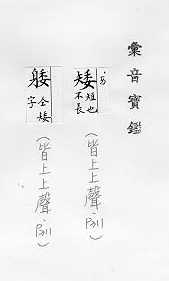 彙音寶鑑
矮 短也不長
(皆上上聲,P311)
躷 仝矮字
(皆上上聲,P311)